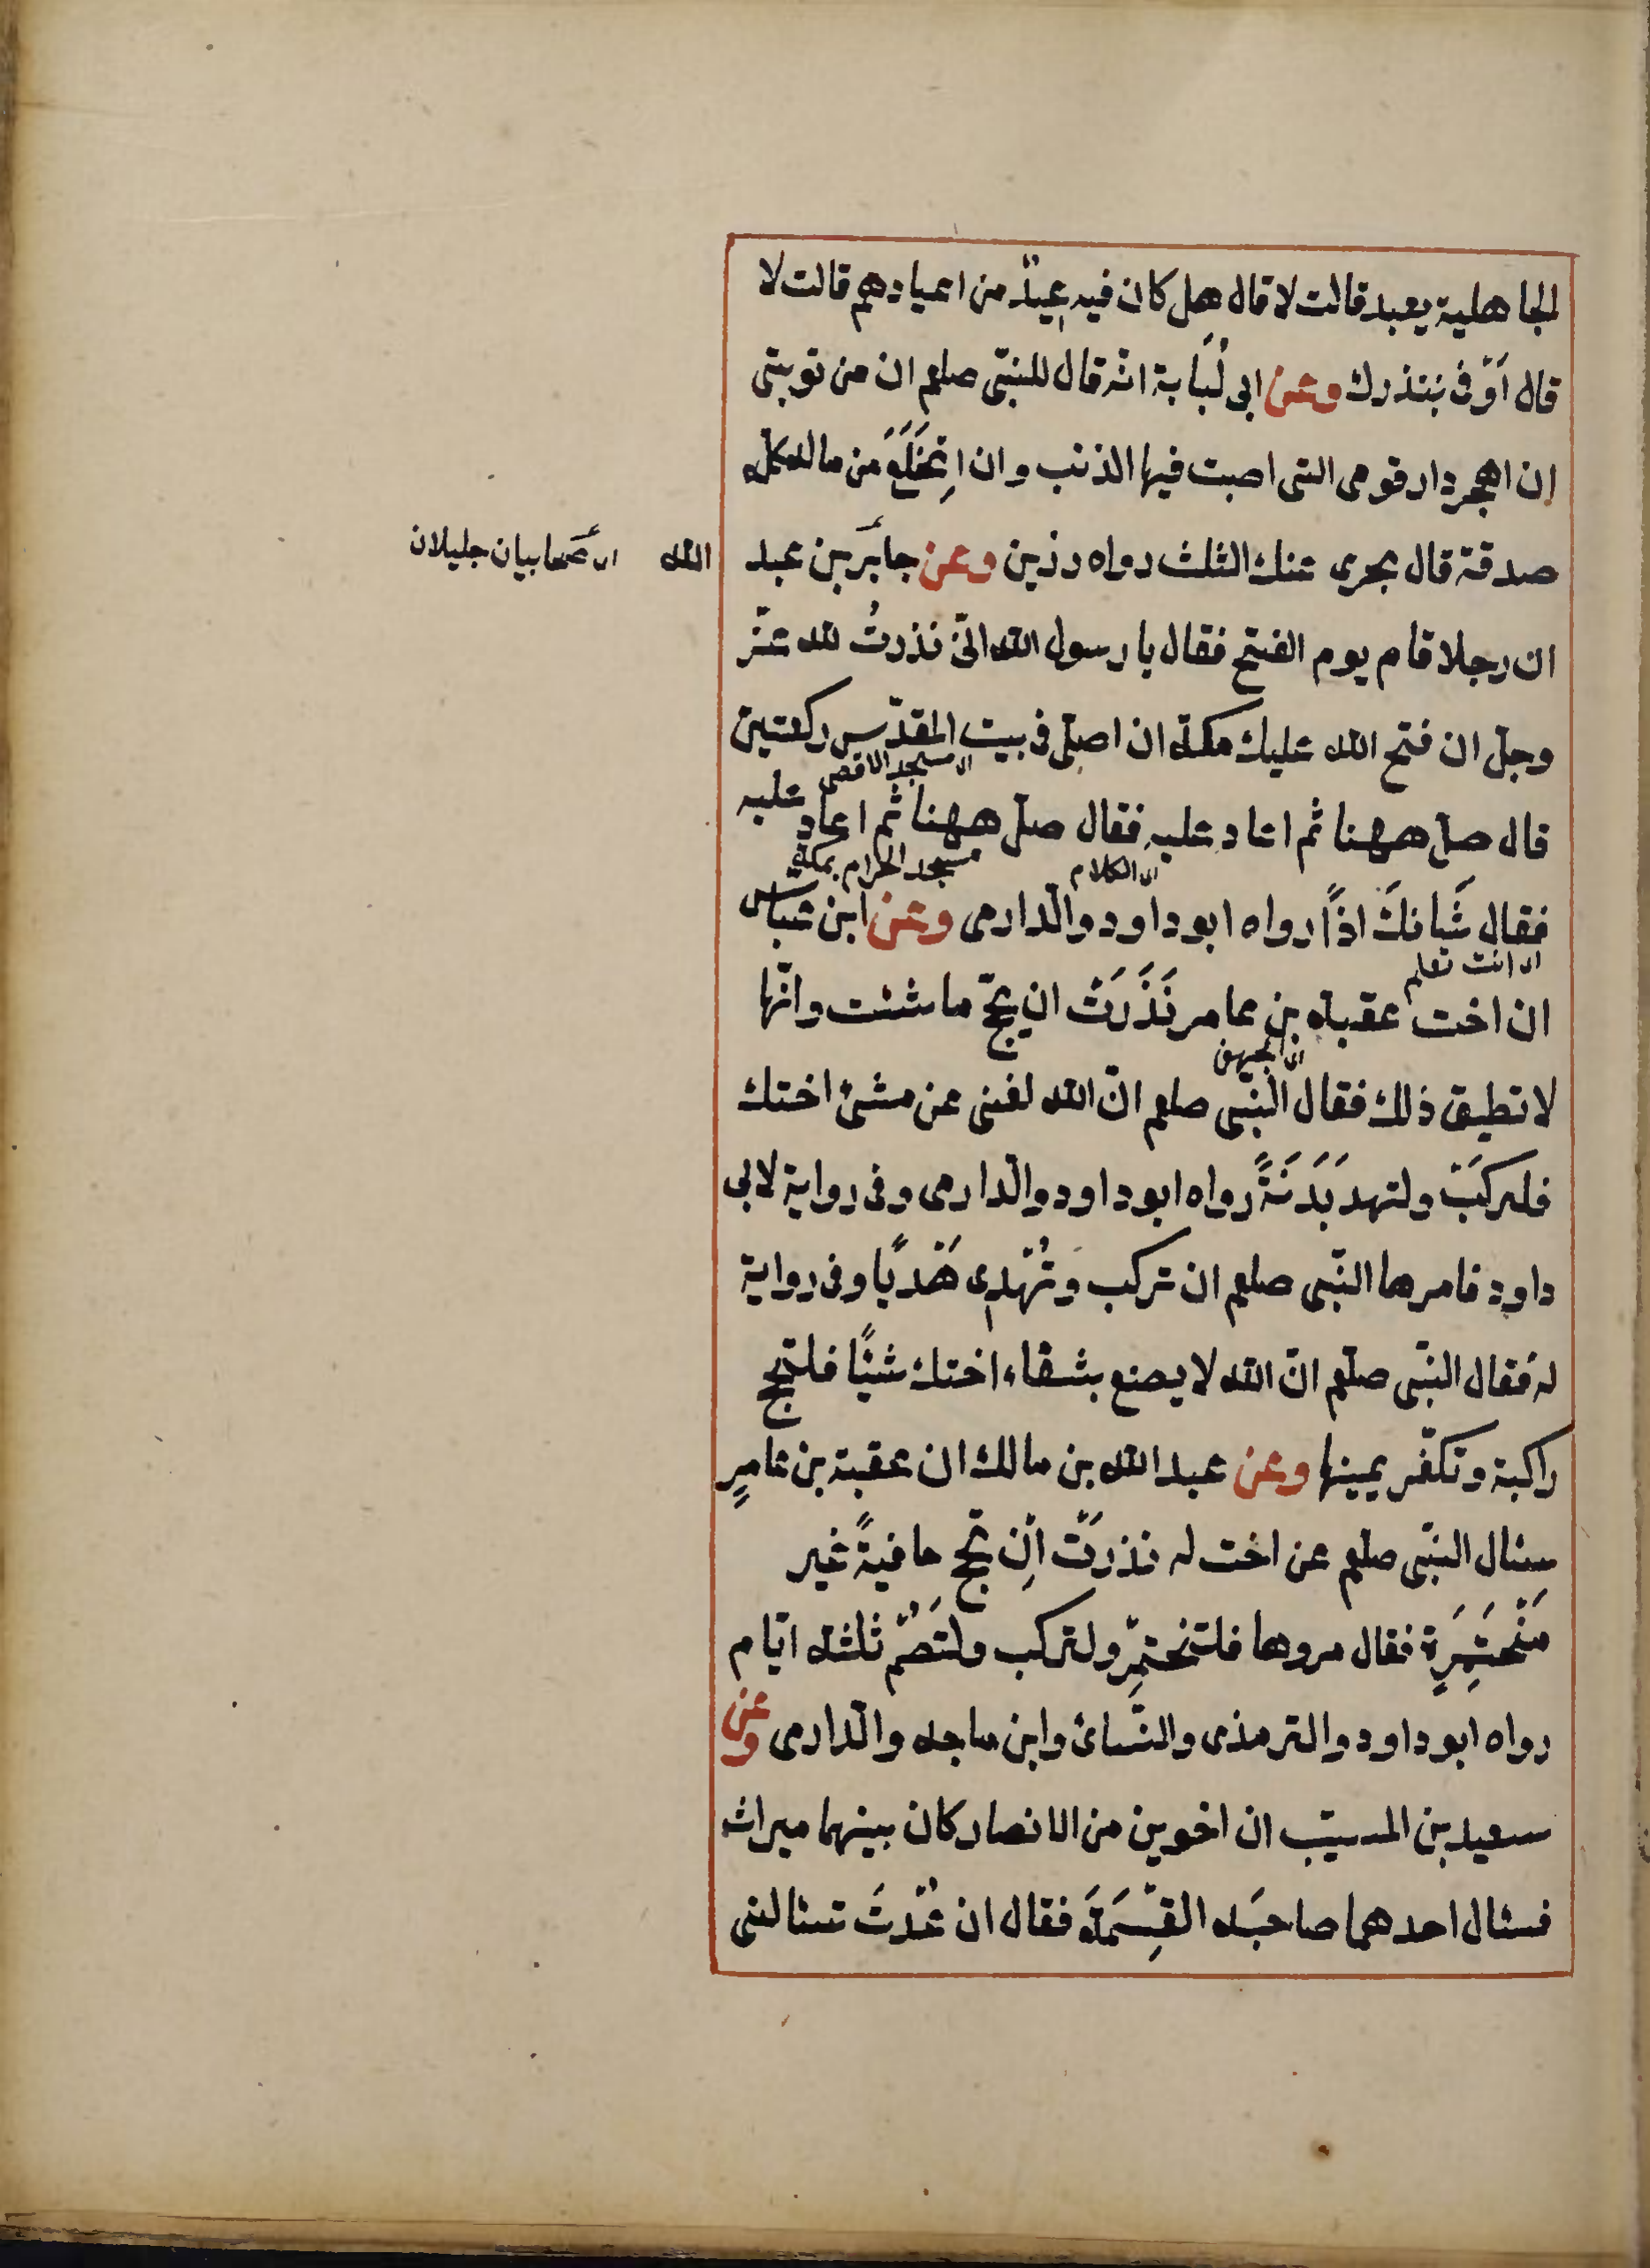 الجاهلية يعبد قالت لا قال هل كان فيه عِيدٌ من اعيادهم قالت لا
قال اَوْفى بنذرك وعن ابى لُبَابة انّه قال للنبّى صلعم ان من توبتى
ان اهجر دار قومى التى اصبت فيها الذنب وان اِتخَلَعَ من مالى كله
صدقة قال يجرى عنك الثلث رواه رزين وعن جابَر بن عبد الله
اى صحابيان جليلان
ان رجلا قام يوم الفتح فقال يا رسول الله انّى نذرتُ لله عزّ
وجلّ ان فتح الله عليك مكة ان اصلّى فى بيت المقدّس ركعتين
اى مسجد الاقصى
قال صلّ ههنا ثم اعاد عليه فقال صلّ ههنا ثم اعاد عليه
مسجد الحرام بمكة
اى الكلام
فقال شَانكَ اذًا رواه ابو داود والدارمى وعن ابن عبّاس
اى انت تعلم
ان اخت عقبة بن عامر نَذَرَتْ ان يحجّ ماشئت وانّها
اى الجهنى
لا تطيق ذلك فقال النبّى صلعم انّ الله لغنى عن مشئ اختك
فلتركبْ ولتهد بَدَنَةً رواه ابو داود والدارمى وفى رواية لابى
داود فامرها النبّى صلعم ان تركب وتُهْدِى هَدْيًا وفى رواية
له فقال النبّى صلعم انّ الله لا يصنع بشقاء اختك شيئًا فلتحج
راكبة وتكفّر يمينها وعن عبد الله بن مالك ان عقبة بن عامرٍ
سئال النبّى صلعم عن اخت له نذرتْ ان تحج حافيةً غير
مُخْتَمِرَةٍ فقال مروها فلتختمِرْ ولتركب ولتَصُمْ ثلثة ايّام
رواه ابو داود والترمذى والنسائ وابن ماجه والدارمى وعن
سعيد بن المسيّب ان اخوين من الانصار كان بينهما ميراث
فسئال احدهما صاحبَه القِسْمَةَ فقال ان عُدْتَ تسئالنى